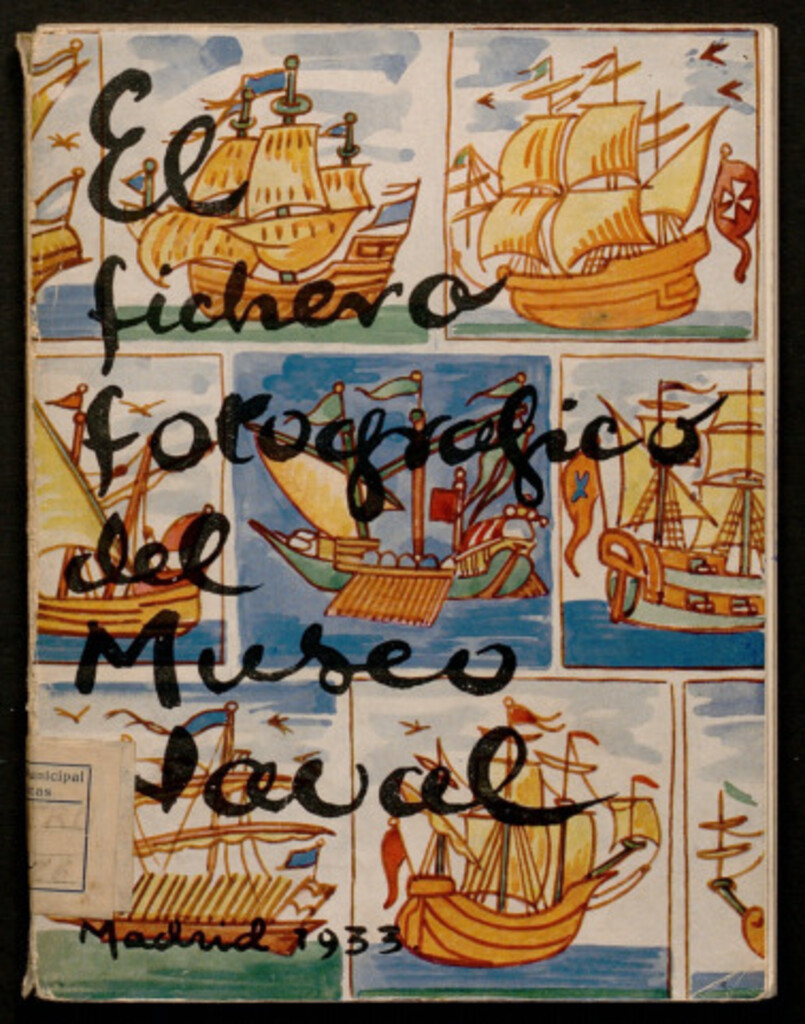 El
fichero
fotografico
del
Museo
Naval
unicipal
Madrid 1933